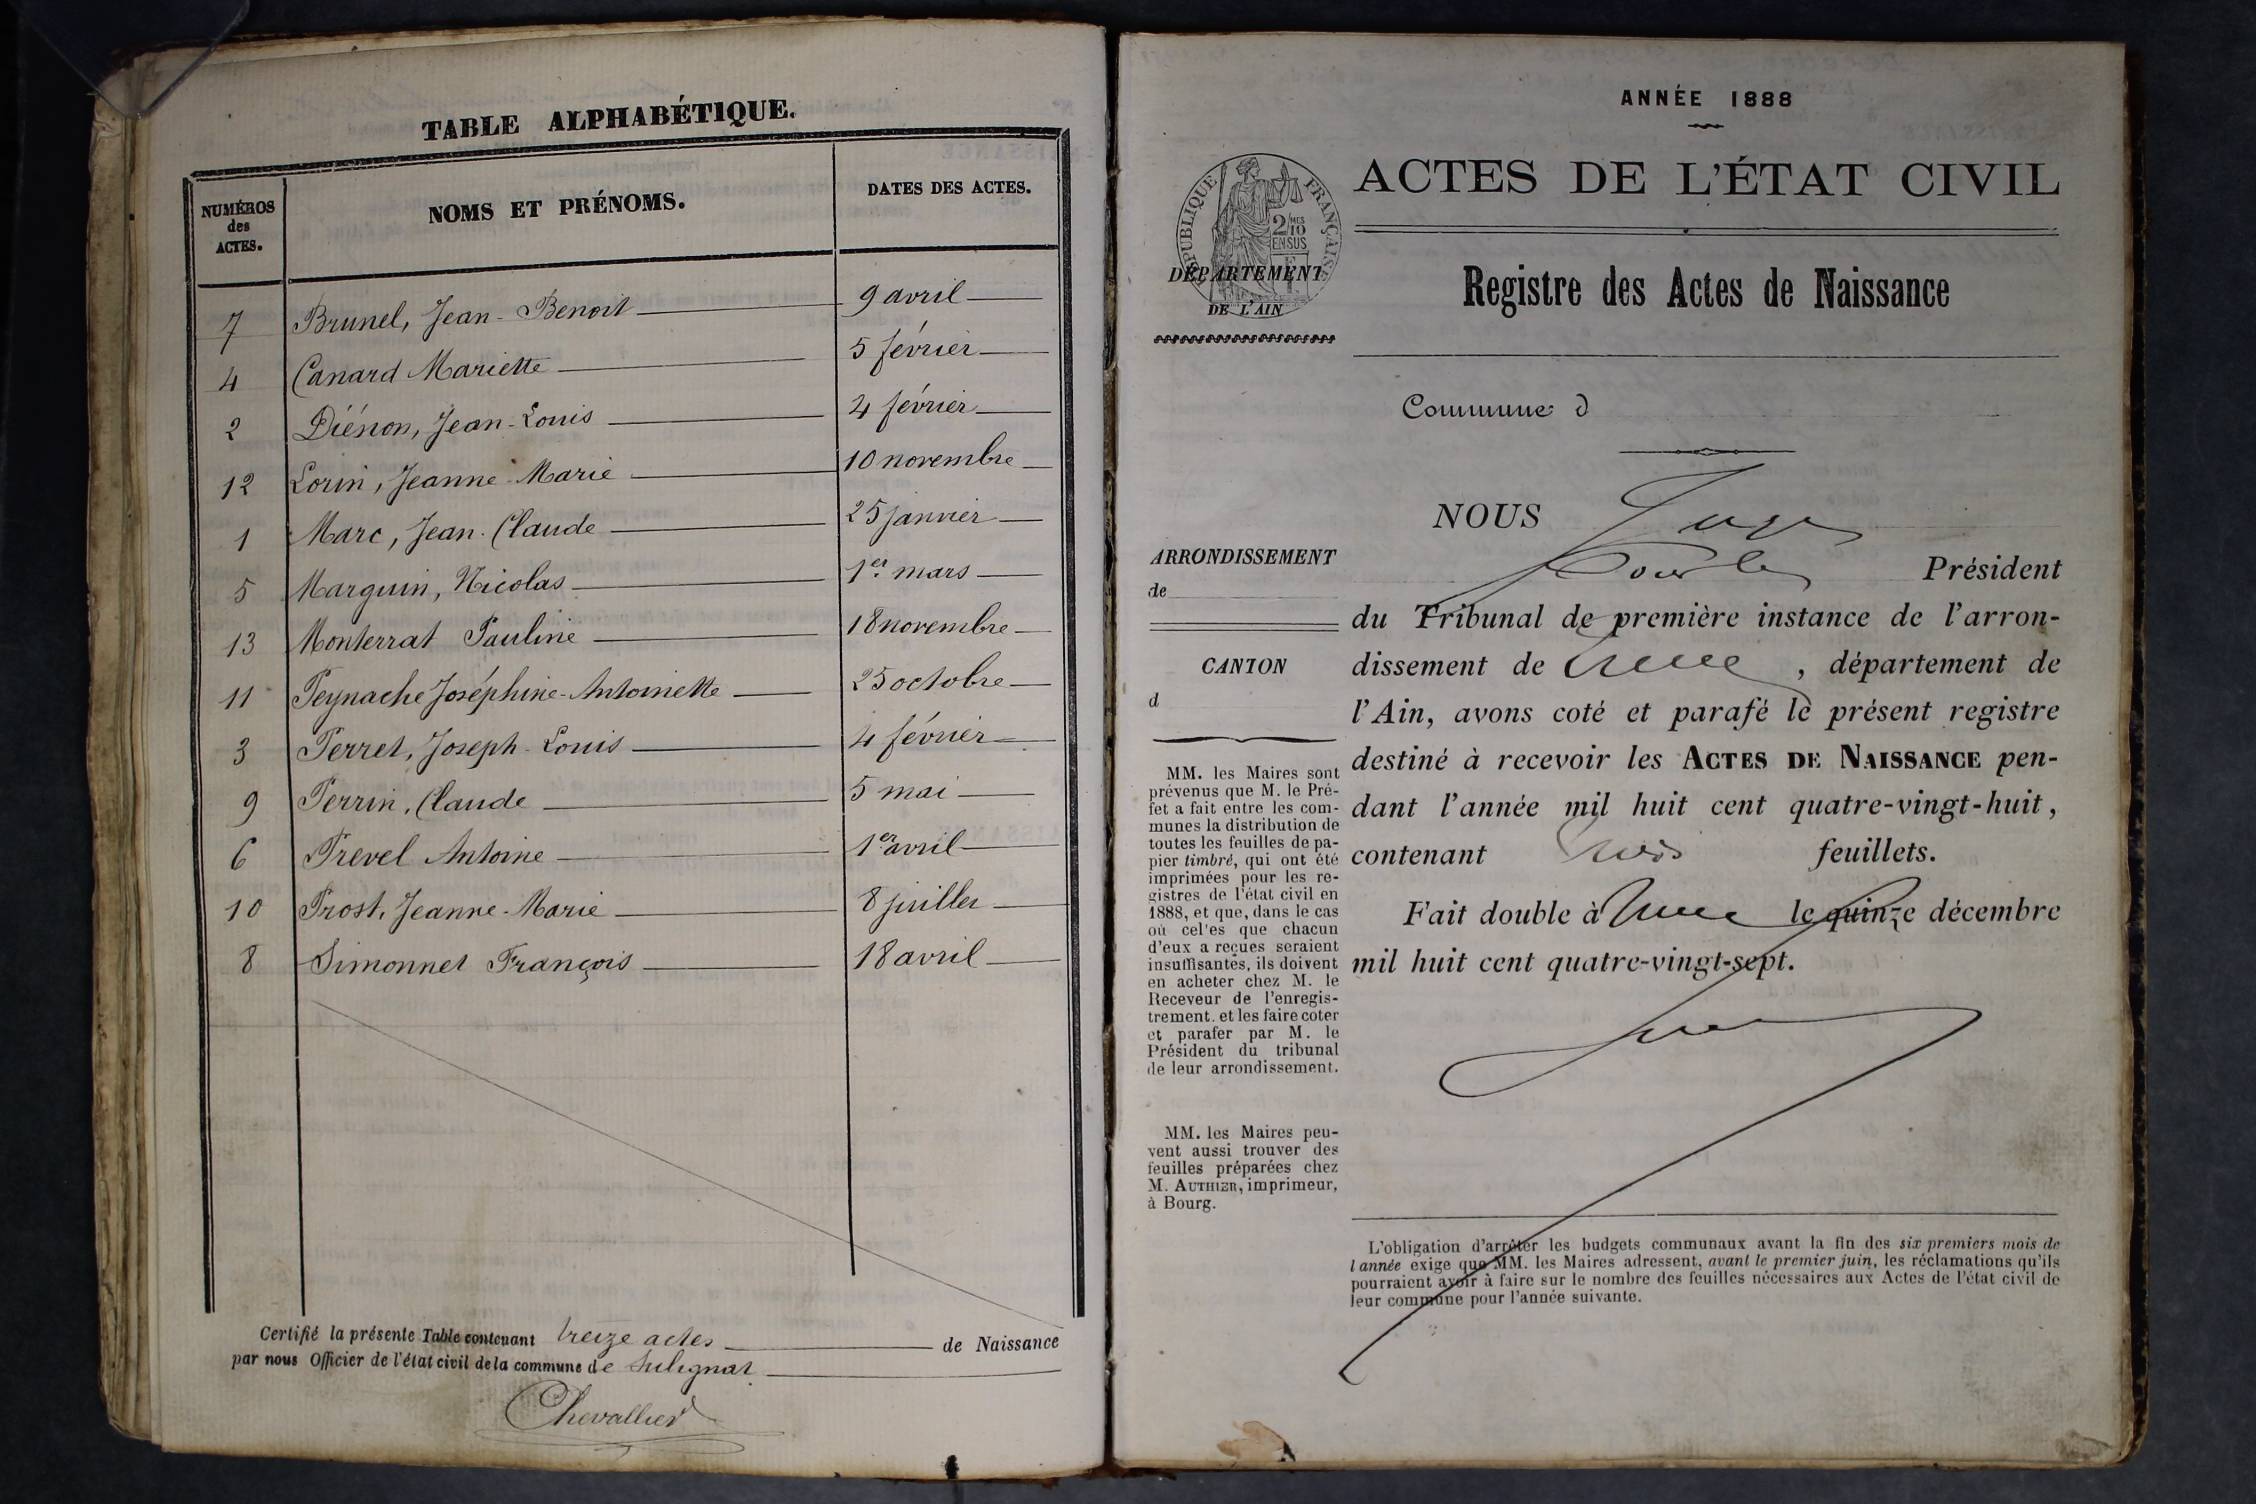 TABLE ALPHABÉTIQUE.
NUMÉROS des ACTES.
NOMS ET PRÉNOMS.
DATES DES ACTES.
7 Brunel, Jean-Benoit 9 avril
4 Canard Mariette 5 février
2 Diénon, Jean-Louis 4 février
12 Lorin, Jeanne-Marie 10 novembre
1 Marc, Jean-Claude 25 janvier
5 Marguin, Nicolas 1er mars
13 Monterrat Pauline 18 novembre
11 Peynache Joséphine-Antoinette 25 octobre
3 Perret, Joseph-Louis 4 février
9 Perrin, Claude 5 mai
6 Prevel Antoine 1er avril
10 Prost, Jeanne-Marie 8 juillet
8 Simonnet François 18 avril
Certifié la présente Table contenant treize actes de Naissance
par nous Officier de l'état civil de la commune de Sulignat
Chevallier
ANNÉE 1888
RÉPUBLIQUE FRANÇAISE
2/10 MES
EN SUS
DÉPARTEMENT
DE L'AIN
ACTES DE L'ÉTAT CIVIL
Registre des Actes de Naissance
Commune d
ARRONDISSEMENT
de
CANTON
d
MM. les Maires sont
prévenus que M. le Pré-
fet a fait entre les com-
munes la distribution de
toutes les feuilles de pa-
pier timbré, qui ont été
imprimées pour les re-
gistres de l'état civil en
1888, et que, dans le cas
où cel'es que chacun
d'eux a reçues seraient
insuffisantes, ils doivent
en acheter chez M. le
Receveur de l'enregis-
trement. et les faire coter
et parafer par M. le
Président du tribunal
de leur arrondissement.
MM. les Maires peu-
vent aussi trouver des
feuilles préparées chez
M. AUTHIER, imprimeur,
à Bourg.
NOUS Juge
pour le Président
du Tribunal de première instance de l'arron-
dissement de , département de
l'Ain, avons coté et parafé le présent registre
destiné à recevoir les ACTES DE NAISSANCE pen-
dant l'année mil huit cent quatre-vingt-huit,
contenant trois feuillets.
Fait double à le quinze décembre
mil huit cent quatre-vingt-sept.
L'obligation d'arrêter les budgets communaux avant la fin des six premiers mois de
l année exige que MM. les Maires adressent, avant le premier juin, les réclamations qu'ils
pourraient avoir à faire sur le nombre des feuilles nécessaires aux Actes de l'état civil de
leur commune pour l'année suivante.